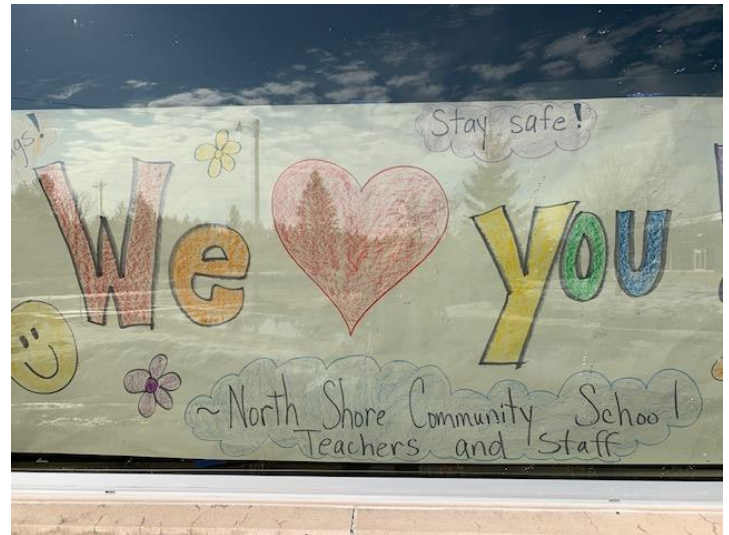 Stay safe!
We ♥ you!
~ North Shore Community School
Teachers and Staff